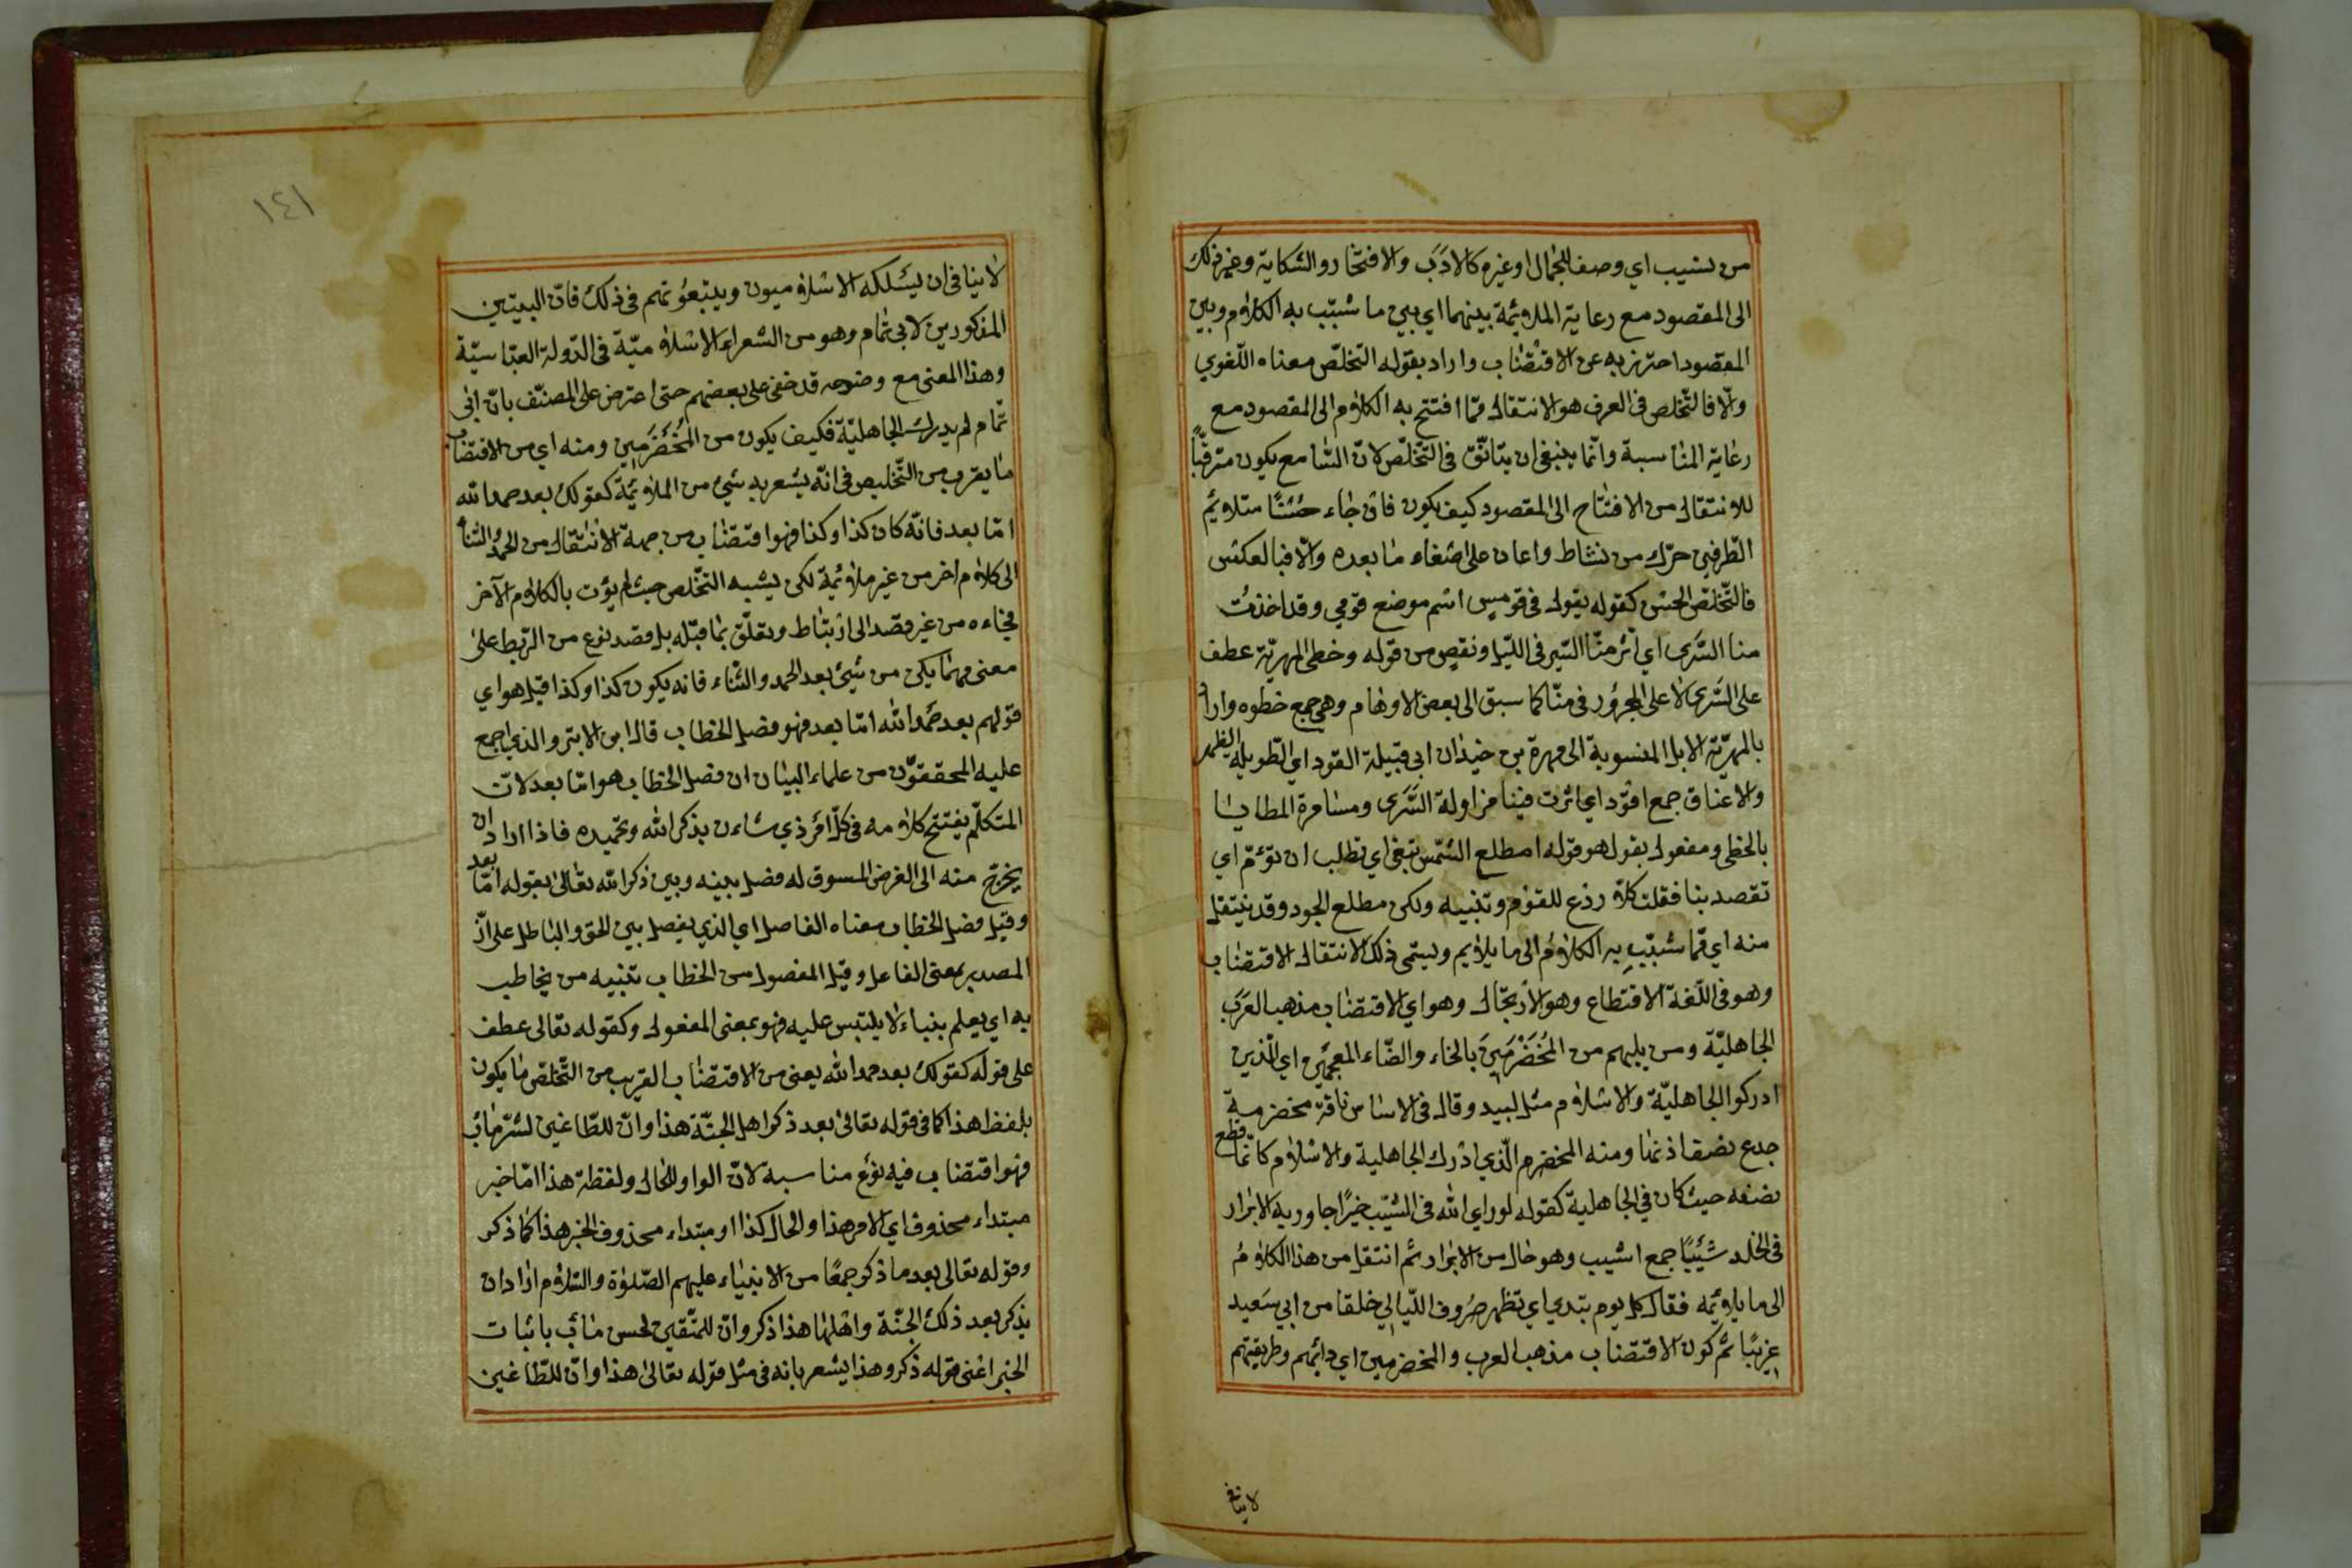 من تشبيب اي وصف للجمال او غيره كالادَب والافتخار والشكاية وغير ذلك
الى المقصود مع رعاية الملايمة بينهما اي بين ما شبّب به الكلام وبين
المقصود احترز به عن الاقتضاب واراد بقوله التخلّص معناه اللّغوي
والّا فالتّخلص في العرف هو الانتقال ممّا افتتح به الكلام الى المقصود مع
رعاية المناسبة وانّما ينبغي ان يتانّق في التّخلّص لانّ السّامع يكون مترقّباً
للانتقال من الافتتاح الى المقصود كيف يكون فان جاء حسَنًا متلايم
الطّرفين حرّك من نشاط واعان على اصغاء ما بعده والّا فبالعكس
فالتّخلّص الحسَن كقوله يقول في قومِسٍ اسم موضع قومي وقد اخذَت
منا السَّرى اي اثر منّا السّير في اللّيل ونقص من قوله وخطى المهريّة عطف
على السَّرى لا على المجرُور في منّا كما سبق الى بعض الاوهام وهي جمع خطوه واراد
بالمهريّة الابل المنسوبة الى مهرة بن حيذان ابي قبيلة القود اي الطّويلة الظهر
والاعناق جمع اقوَد اي اثرت فينا مزاولة السَّرى ومسامرة المطايا
بالخطى ومفعول يقول هو قوله امطلع الشّمس تبغي اي تطلب ان تؤمّ اي
تقصد بنا فقلت كلّا ردع للقَوم وتنبيه ولكن مطلع الجود وقد ينتقل
منه اي ممّا شبّب به الكلامُ الى ما يلايم ويسمّى ذلك الانتقال الاقتضاب
وهو في اللّغة الاقتطاع وهو الارتجال وهو اي الاقتضاب مذهب العَرَب
الجاهليّة ومن يليهم من المُخَضْرَمِينَ بالخاء والضّاء المعجمتين اي الّذين
ادركوا الجاهليّة والاسلام مثل لبيد وقال في الاساس ناقة مخضرمة
جدع نصف اذنها ومنه المخضرم الّذي ادرك الجاهلية والاسلام كانّما قطع
نصفه حيث كان في الجاهلية كقوله لو راى الله في الشَّيب خيرًا جاورته الابرار
في الخلد شَيْبًا جمع اشيب وهو حال من الابرار ثم انتقل من هذا الكلامُ
الى ما يلايمه فقال كل يوم تبدي اي تظهر صُروف اللّيالي خلقا من ابي سَعيد
غريبًا ثم كون الاقتضاب مذهب العرب والمخضرمين اي دائبهم وطريقتهم
لا ينافي
١٤١
لا ينافي ان يسلكه الاسلاميون ويتبعُوتهم في ذلك فانّ البيتين
المذكورين لابي تمام وهو من الشعراء الاسلاميّة في الدّولة العبّاسيّة
وهذا المعنى مع وضوحه قد خفى على بعضهم حتى اعترض على المصنّف بانّ ابي
تمّام لم يدرك الجاهليّة فكيف يكون من المُخَضْرَمِين ومنه اي من الاقتضاب
ما يقرب من التّخليص في انّه يشعر به شيء من الملايمة كقولك بعد حمد الله
امّا بعد فانّه كان كذا وكذا فهو اقتضاب من جهة الانتقال من الحمد والثنا
الى كلام اخر من غير ملايمة لكن يشبه التخّلص حيث لم يؤت بالكلام الآخر
فجاءه من غير قصد الى ارتباط وتعلّق بما قبله بل قصد نوع من الرّبط على
معنى مهما يكن من شيئ بعد الحمد والثّناء فانه يكون كذا وكذا قيل هو اي
قولهم بعد حَمد الله امّا بعد فهو فصل الخطاب قال ابن الاثير والذي اجمع
عليه المحققوّن من علماء البيان ان فصل الخطاب هو امّا بعد لانّ
المتكلّم يفتتح كلامه في كلّ امر ذي شاءن بذكر الله وتحميده فاذا اراد ان
يخرج منه الى الغرض المسوق له فصل بينه وبين ذكر الله تعالى بقوله امّا بعد
وقيل فصل الخطاب معناه الفاصل اي الذي يفصل بين الحق والباطل على انّ
المصدر بمعنى الفاعل وقيل المفصول من الخطاب بتنبيه من يخاطب
به اي يعلم بنباء لا يلتبس عليه فهو بمعنى المفعول وكقوله تعالى عطف
على قوله كقولك بعد حمد الله يعني من الاقتضاب القريب من التّخلّص ما يكون
بلفظ هذا كما في قوله تعالى بعد ذكر اهل الجنّة هذا وانّ للطّاغين لشرّ مآب
فهو اقتضاب فيه نوع مناسبة لانّ الواو للحال ولفظة هذا امّا خبر
مبتداء محذوف اي الامر هذا والحال كذا او مبتداء محذوف الخبر هذا كما ذكر
وقوله تعالى بعد ما ذكر جمعًا من الانبياء عليهم الصّلوة والسّلام اراد ان
يذكر بعد ذلك الجنّة واهلها هذا ذكر وانّ للمتّقين لحسن مآب باثبات
الخبر اعنى قوله ذكر وهذا يشعر بانه في مثل قوله تعالى هذا وانّ للطّاغين